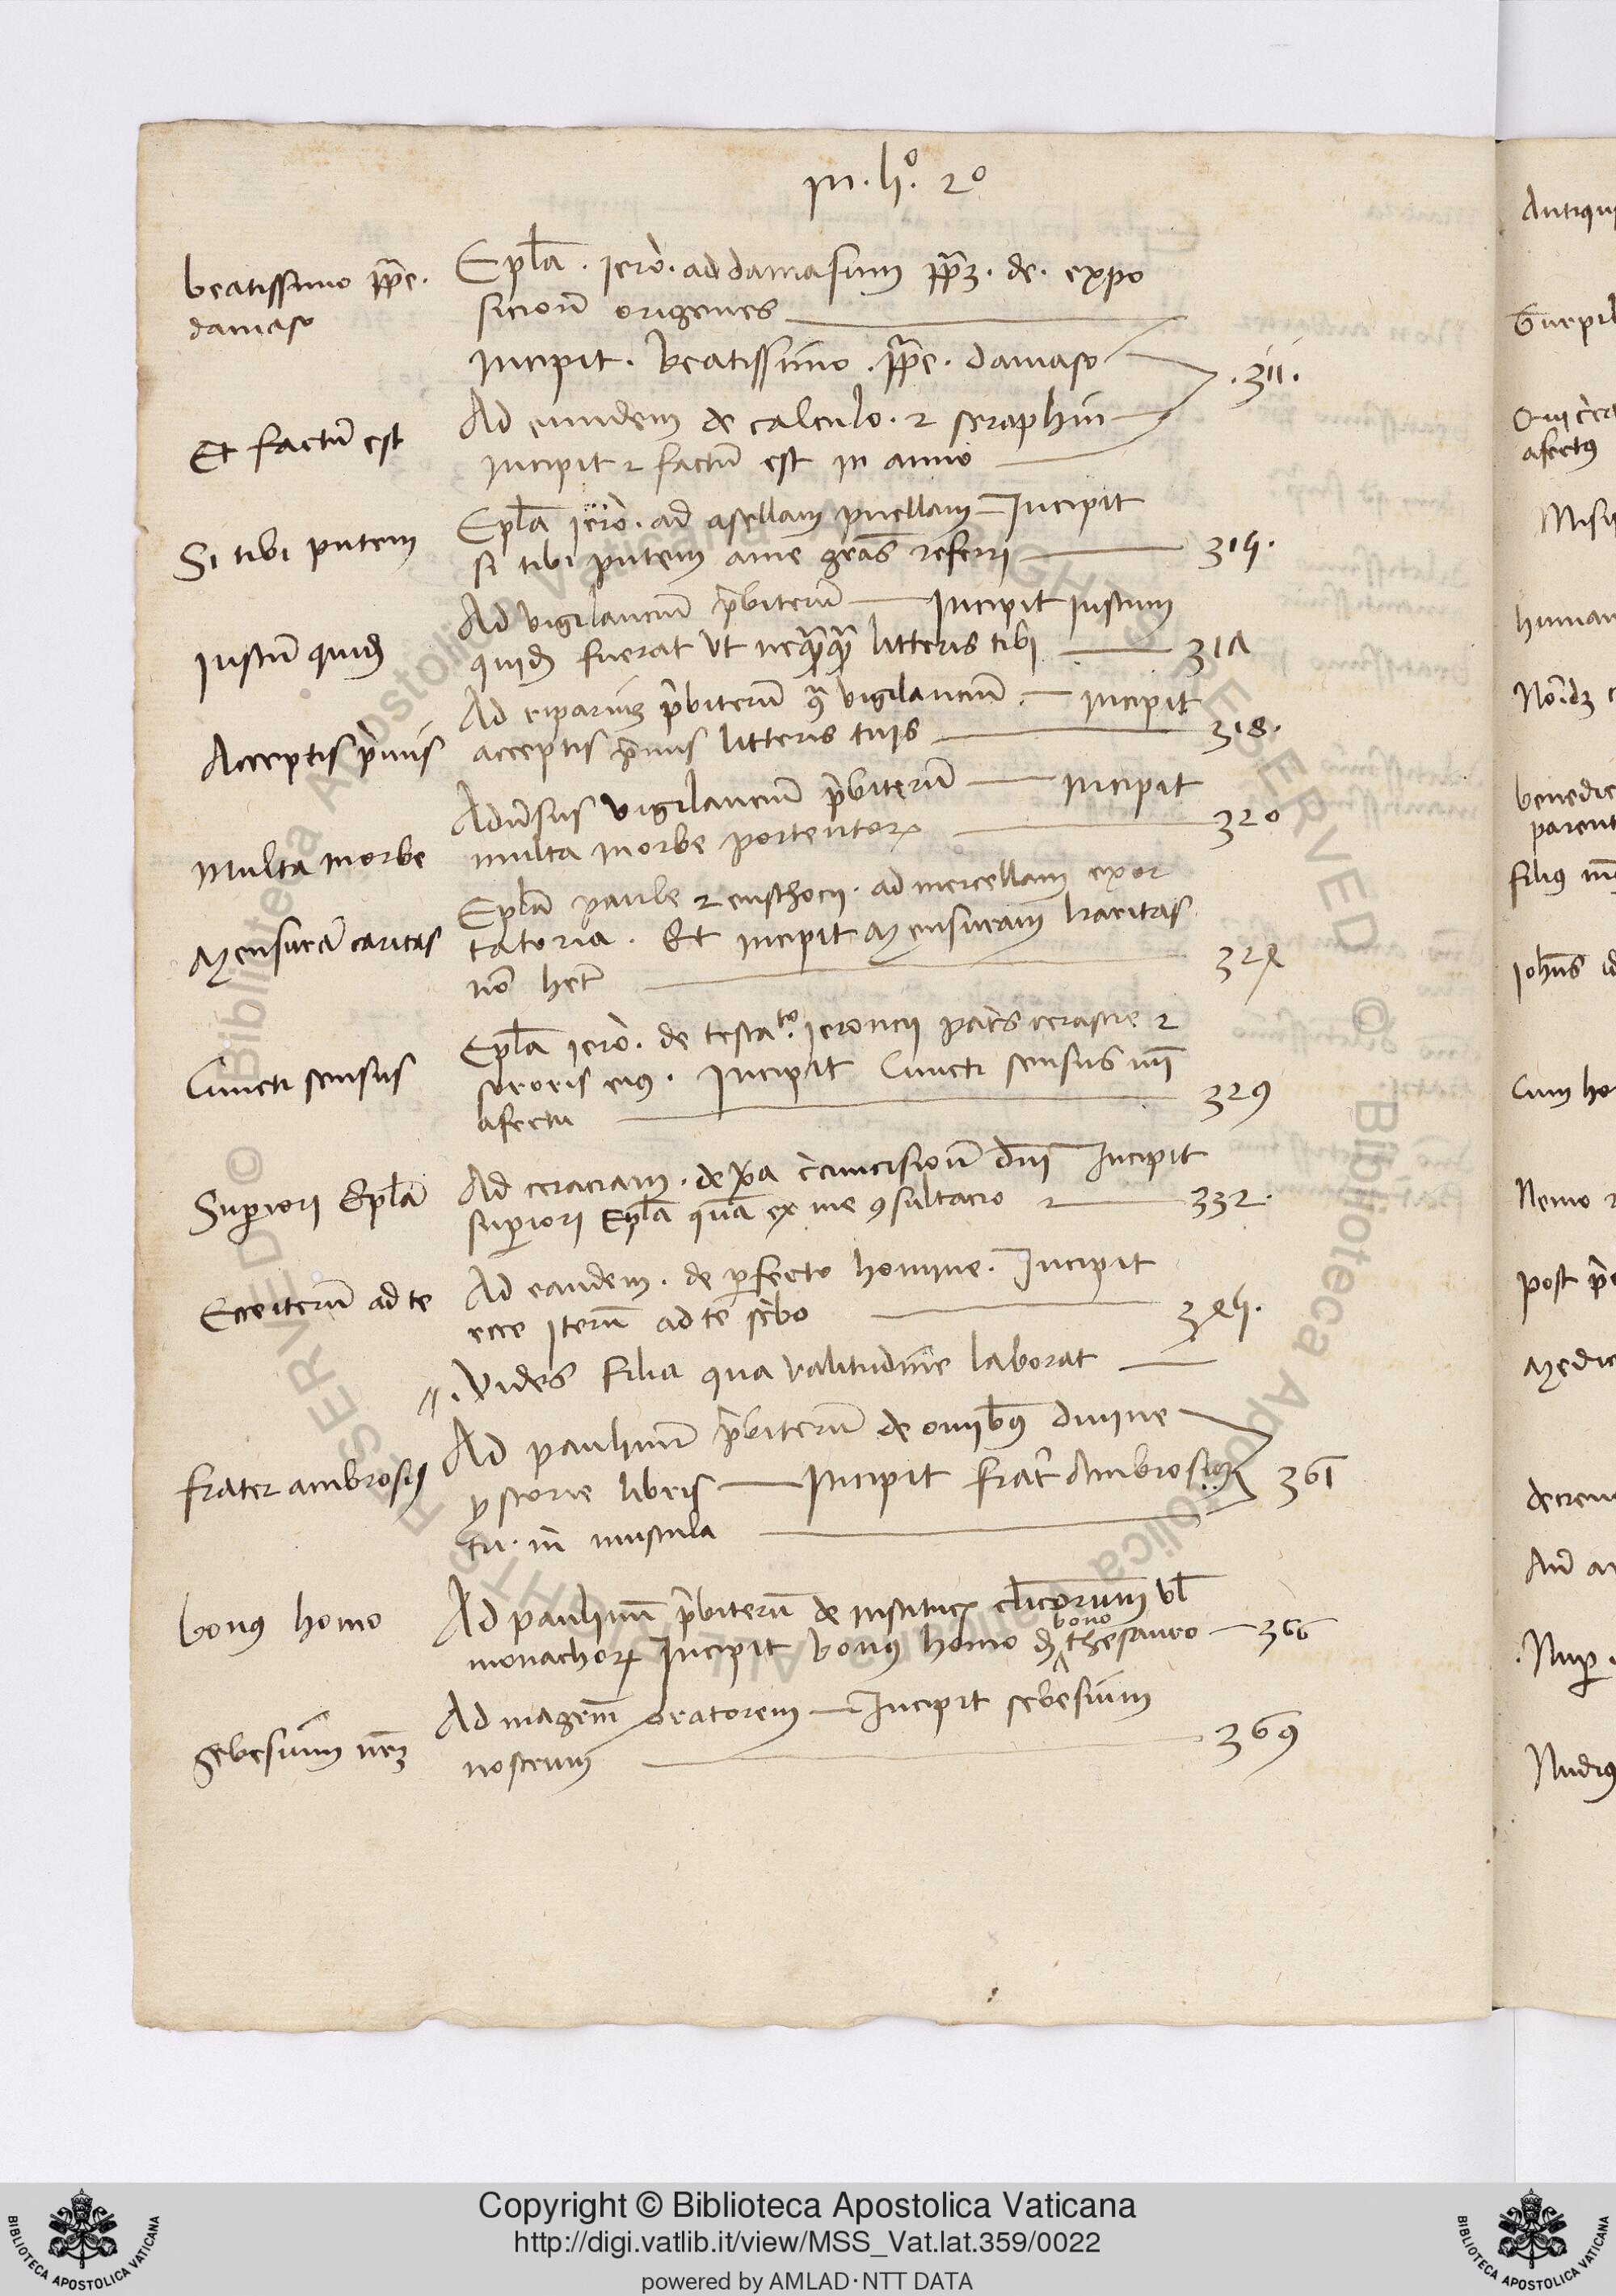 in. li.º 2º
beatissimo ppe.
damaso
Epla. iero. ad damasum ppz. de. expo
sicion origenes
incipit. beatissimo. ppe. damaso
.311.
Et factu est
Ad eundem de calculo. et seraphin
incipit et factu est in anno
Si tibi putem
Epla iero. ad asellam puellam Incipit
si tibi putem a me gras referri
314.
iustu quid
Ad vigilanciu pbiteru Incipit iustum
quid fuerat ut nequaqua litteris tibi
317
Acceptis primis
Ad riparius pbiteru qa vigilanciu incipit
acceptis primis litteris tuis
318.
Multa in orbe
Adusus vigilanciu pbiteru incipit
multa in orbe portentor
320
Mensura caritas
Epla paule et eusthocii. ad mercellam exor
tatoria. Et incipit Mensuram karitas
no het
324
Cuncti sensus
Epla iero. de testato. ieroncii pats cerascie et
sororis eius. Incipit Cuncti sensus mi
afectu
329
Superiori Epla
Ad ceraciam. de xpa circuncision dni Incipit
superiori Epla qua ex me consultacio et
332.
Ecce iteru ad te
Ad eandem. de perfecto homine. Incipit
ecce iteru ad te scribo
344.
//. Vides filia qua valitudine laborat
frater ambrosius
Ad paulinu pbiteru de omibus divine
ystorie libris Incipit frater Ambrosius
tu. in muscula
361
bonus homo
Ad paulinu pbiteru de instituc clicorum vl
monachor Incipit bonus homo d bono thesauro 366
sebesium nrz
Ad magem oratorem Incipit sebesium
nostrum
369
Copyright © Biblioteca Apostolica Vaticana
http://digi.vatlib.it/view/MSS_Vat.lat.359/0022
powered by AMLAD·NTT DATA